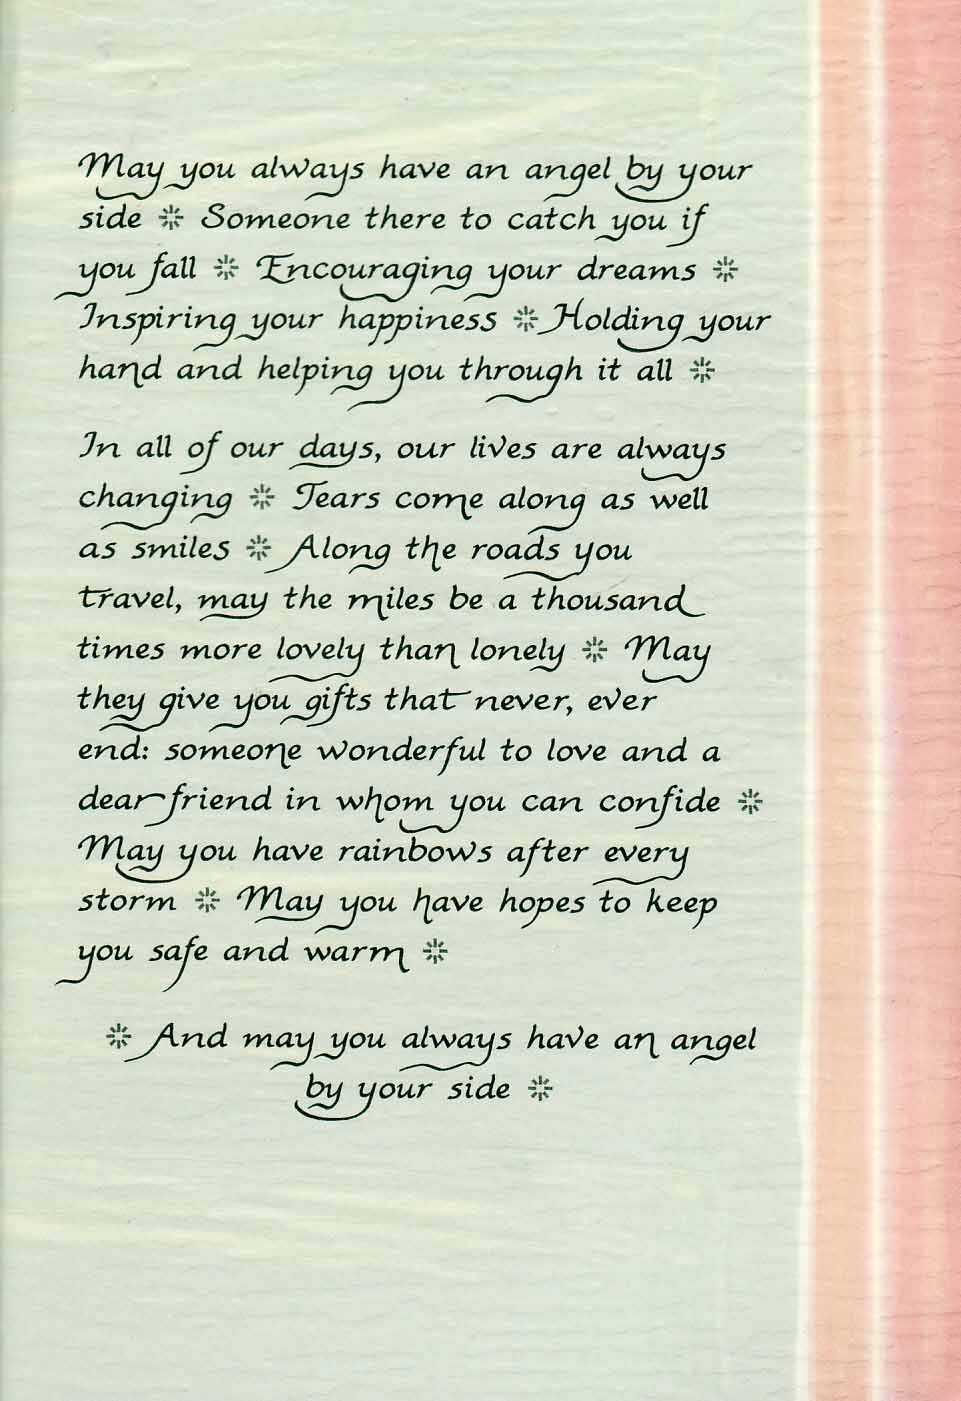 May you always have an angel by your
side ✻ Someone there to catch you if
you fall ✻ Encouraging your dreams ✻
Inspiring your happiness ✻ Holding your
hand and helping you through it all ✻
In all of our days, our lives are always
changing ✻ Tears come along as well
as smiles ✻ Along the roads you
travel, may the miles be a thousand
times more lovely than lonely ✻ May
they give you gifts that never, ever
end: someone wonderful to love and a
dear friend in whom you can confide ✻
May you have rainbows after every
storm ✻ May you have hopes to keep
you safe and warm ✻
✻ And may you always have an angel
by your side ✻